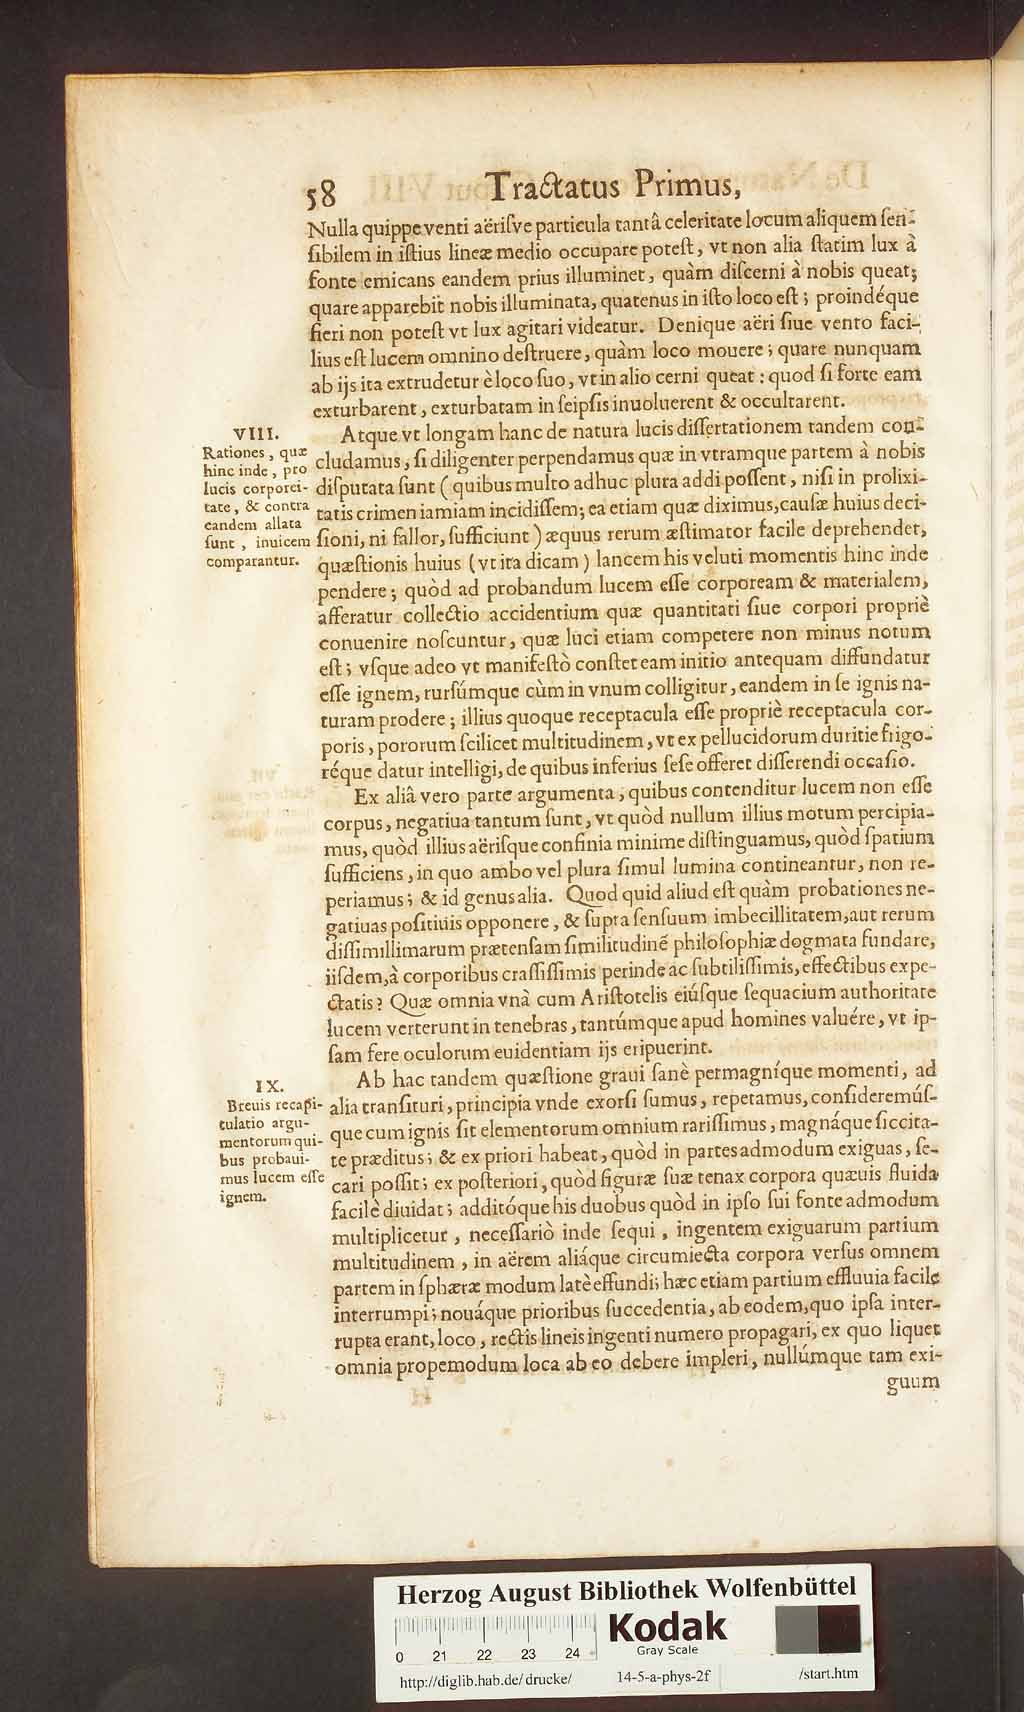 58 Tractatus Primus,
Nulla quippe venti aëriſve particula tantâ celeritate locum aliquem ſen-
ſibilem in iſtius lineæ medio occupare poteſt, vt non alia ſtatim lux à
fonte emicans eandem prius illuminet, quàm diſcerni à nobis queat;
quare apparebit nobis illuminata, quatenus in iſto loco eſt; proindéque
fieri non poteſt vt lux agitari videatur. Denique aëri ſiue vento faci-
lius eſt lucem omnino deſtruere, quàm loco mouere; quare nunquam
ab ijs ita extrudetur è loco ſuo, vt in alio cerni queat: quod ſi forte eam
exturbarent, exturbatam in ſeipſis inuoluerent & occultarent.
VIII.
Rationes, quæ
hinc inde, pro
lucis corporei-
tate, & contra
eandem allata
ſunt, inuicem
comparantur.
Atque vt longam hanc de natura lucis diſſertationem tandem con-
cludamus, ſi diligenter perpendamus quæ in vtramque partem à nobis
diſputata ſunt (quibus multo adhuc plura addi poſſent, niſi in prolixi-
tatis crimen iamiam incidiſſem; ea etiam quæ diximus, cauſæ huius deci-
ſioni, ni fallor, ſufficiunt) æquus rerum æſtimator facile deprehendet,
quæſtionis huius (vt ita dicam) lancem his veluti momentis hinc inde
pendere; quòd ad probandum lucem eſſe corpoream & materialem,
afferatur collectio accidentium quæ quantitati ſiue corpori propriè
conuenire noſcuntur, quæ luci etiam competere non minus notum
eſt; vſque adeo vt manifeſtò conſtet eam initio antequam diffundatur
eſſe ignem, rurſúmque cùm in vnum colligitur, eandem in ſe ignis na-
turam prodere; illius quoque receptacula eſſe propriè receptacula cor-
poris, pororum ſcilicet multitudinem, vt ex pellucidorum duritie frigo-
réque datur intelligi, de quibus inferius ſeſe offeret diſſerendi occaſio.
Ex aliâ vero parte argumenta, quibus contenditur lucem non eſſe
corpus, negatiua tantum ſunt, vt quòd nullum illius motum percipia-
mus, quòd illius aëriſque confinia minime diſtinguamus, quòd ſpatium
ſufficiens, in quo ambo vel plura ſimul lumina contineantur, non re-
periamus; & id genus alia. Quod quid aliud eſt quàm probationes ne-
gatiuas poſitiuis opponere, & ſupra ſenſuum imbecillitatem, aut rerum
diſſimillimarum prætenſam ſimilitudinẽ philoſophiæ dogmata fundare,
iiſdem, à corporibus craſſiſſimis perinde ac ſubtiliſſimis, effectibus expe-
ctatis? Quæ omnia vnà cum Ariſtotelis eiúſque ſequacium authoritate
lucem verterunt in tenebras, tantúmque apud homines valuére, vt ip-
ſam fere oculorum euidentiam ijs eripuerint.
IX.
Breuis recapi-
tulatio argu-
mentorum qui-
bus probaui-
mus lucem eſſe
ignem.
Ab hac tandem quæſtione graui ſanè permagníque momenti, ad
alia tranſituri, principia vnde exorſi ſumus, repetamus, conſideremúſ-
que cum ignis ſit elementorum omnium rariſſimus, magnáque ſiccita-
te præditus; & ex priori habeat, quòd in partes admodum exiguas, ſe-
cari poſſit; ex poſteriori, quòd figuræ ſuæ tenax corpora quæuis fluida
facilè diuidat; additóque his duobus quòd in ipſo ſui fonte admodum
multiplicetur, neceſſariò inde ſequi, ingentem exiguarum partium
multitudinem, in aërem aliáque circumiecta corpora verſus omnem
partem in ſphæræ modum latè effundi; hæc etiam partium effluuia facile
interrumpi; nouáque prioribus ſuccedentia, ab eodem, quo ipſa inter-
rupta erant, loco, rectis lineis ingenti numero propagari, ex quo liquet
omnia propemodum loca ab eo debere impleri, nullúmque tam exi-
guum
Herzog August Bibliothek Wolfenbüttel
Kodak
Gray Scale
0 21 22 23 24
http://diglib.hab.de/drucke/ 14-5-a-phys-2f /start.htm